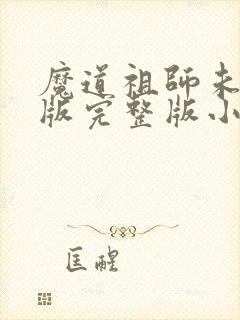 魔道祖師未
版完整版小
匡醒